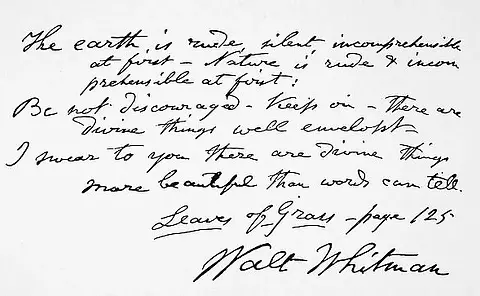 The earth is rude, silent, incomprehensible
at first – Nature is rude & incom
prehensible at first;
Be not discouraged – Keep on – there are
divine things well envelopt –
I swear to you there are divine things
more beautiful than words can tell.
Leaves of Grass – page 125
Walt Whitman